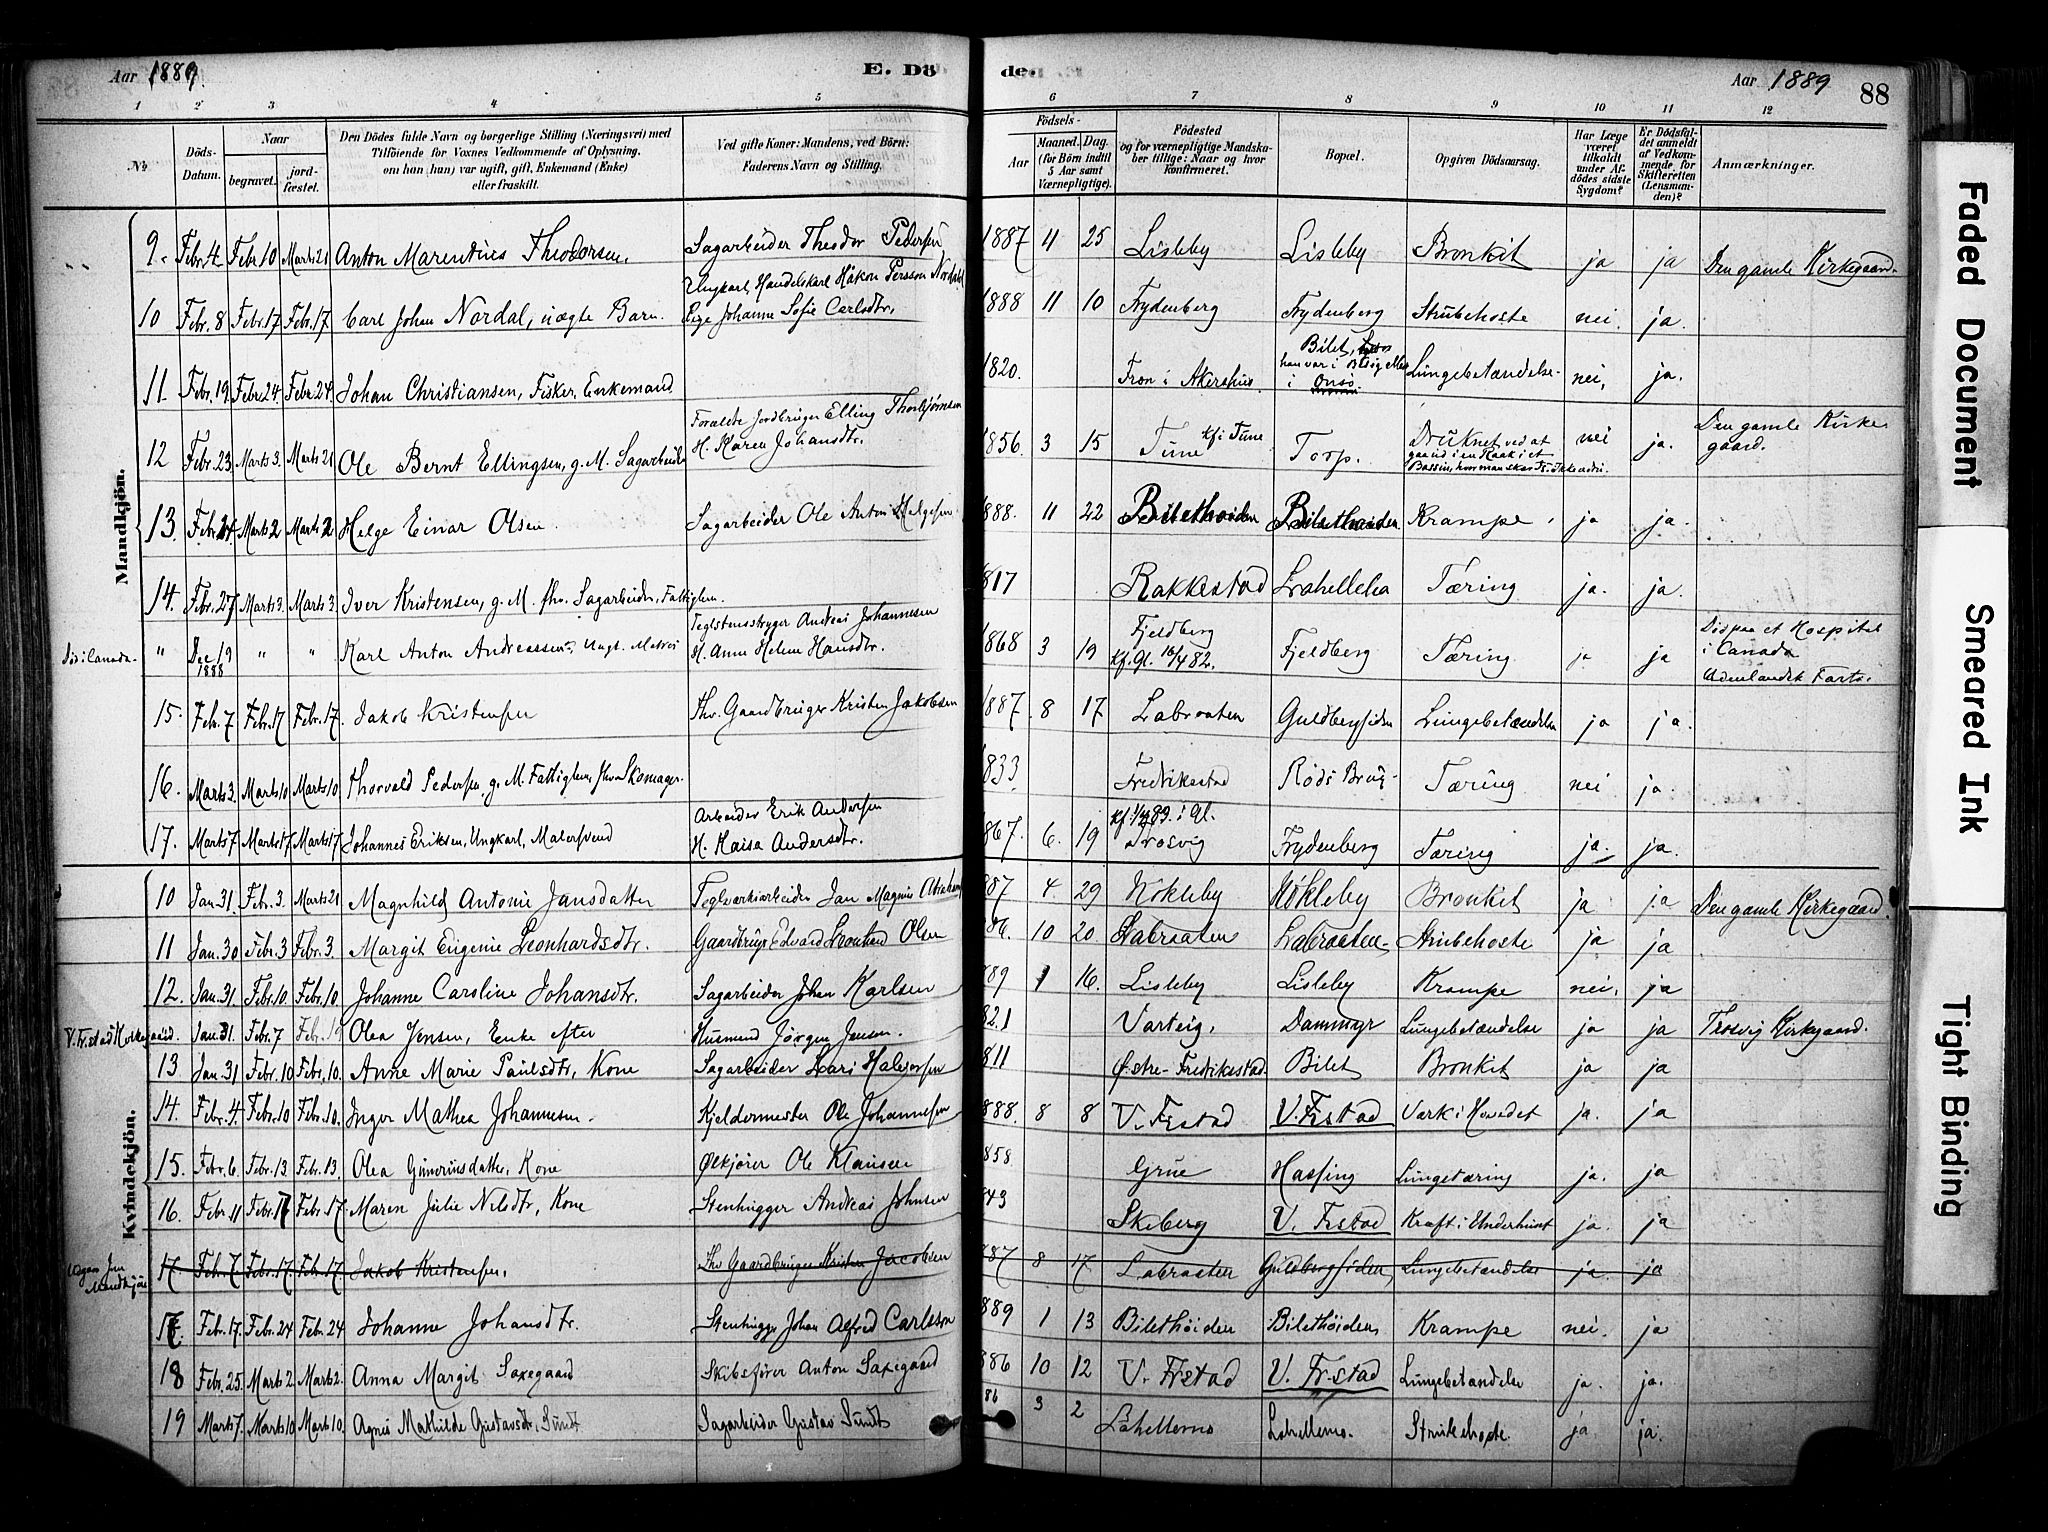 Aar 1889.
E. Dö
de.
Aar 1889
88
1 2 3 4 5 6 7 8 9 10 11 12
No.
Döds-Datum.
Naar
begravet.
jordfæstet.
Den Dödes fulde Navn og borgerlige Stilling (Næringsvei) med
Tilföiende for Voxnes Vedkommende af Oplysning,
om han (hun) var ugift, gift, Enkemand (Enke)
eller fraskilt.
Ved gifte Koner: Mandens, ved Börn:
Faderens Navn og Stilling.
Födsels-
Aar
Maaned. Dag.
(for Börn indtil
5 Aar samt
Værnepligtige).
Födested
og for værnepligtige Mandskaber tillige: Naar og hvor
konfirmeret.
Bopæl.
Opgiven Dödsaarsag.
Har Læge
været
tilkaldt
under Afdödes sidste
Sygdom?
Er Dödsfaldet anmeldt
af Vedkommende, for
Skifteretten
(Lensmanden)?
Anmærkninger.
Mandkjön.
9. Febr. 4. Febr. 10 Marts 21 Anton Marentius Theodorsen. Sagarbeider Theodor Pedersen 1887 11 25 Lisleby Lisleby Bronkit ja ja Den gamle Kirkegaard.
Ungkarl, Handelskarl Håkon Persson Nordahl
10 Febr. 8 Febr. 17 Febr. 17 Carl Johan Nordal, uægte Barn. Pige Johanne Sofie Carlsdtr. 1888 11 10 Frydenberg Frydenberg Strubehoste nei. ja.
11. Febr. 19. Febr. 24. Febr. 24 Johan Christiansen, Fisker, Enkemand 1820. Fron i Akershus Bilet, han var i Besøg i Onsö Lungebetændelse nei, ja.
Foraldte Jordbruger Elling Thorbjørnsen
12 Febr. 23. Marts 3. Marts 21 Ole Bernt Ellingsen, g. M. Sagarbeider H. Karen Johansdtr. 1856. 3 15 Tune kf. i Tune Torp. Druknet ved at gaa ud i en Raak i et Bassin, hvor man skar Is. nei ja. Den gamle Kirkegaard.
13. Febr. 24. Marts 2 Marts 2 Helge Einar Olsen. Sagarbeider Ole Anton Helgesen 888. 11 22 Bilethøiden Bilethøiden Krampe. ja ja.
14. Febr. 27 Marts 3. Marts 3. Iver Kristensen, g. M. fhv. Sagarbeider, Fattiglem. 817 Rakkestad Lahellelia Tæring ja. ja.
Teglstensstryger Andreas Johannesen
Död i Canada. " Dec 19 1888 " " Karl Anton Andreassen, Ungk. Matros H. Anne Helene Hansdtr. 1868 3 19 Fjeldberg Kf. Gl. 16/4 82. Fjeldberg Tæring ja ja Död paa et Hospital i Canada Udenlandsk Farts.
15. Febr. 7 Febr. 17 Febr. 17. Jakob Kristensen fhv. Gaardbruger Kristen Jakobsen 1887. 8 17 Labraaten Guldbergsiden Lungebetændelse ja ja.
16. Marts 3. Marts 10 Marts 10. Thorvald Pedersen g. M. Fattiglem, fhv. Skomager. 833 Fredrikstad Röds Brug. Tæring nei ja.
Arbeider Erik Andersen
17. Marts 7 Marts 17 Marts 17 Johannes Eriksen, Ungkarl, Malersvend H. Kaisa Andersdtr. 867. 6. 19 83. i Gl. Trosvig Frydenberg Tæring ja. ja.
Kvindekjön.
10 Jan. 31. Febr. 3. Marts 21 Magnhild Antonie Jansdatter Teglværksarbeider Jan Magnus 887 4 29 Nökleby Nökleby Bronkit ja ja Den gamle Kirkegaard.
11 Jan. 30 Febr. 3 Febr. 3. Margit Eugenie Leonhardsdtr. Gaardbruger Edvard Leonhard Olsen 86. 10 20. Labraaten Labraaten Strubehoste ja ja
12. Jan. 31. Febr. 10. Febr. 10. Johanne Caroline Johansdtr. Sagarbeider Johan Karlsen 889 1 16. Lisleby Lisleby Krampe nei. ja
V. Fr.stad Kirkegaard. Jan. 31. Febr. 7 Febr. Olea Jensen, Enke efter Husmand Jørgen Jensen. 821 Varteig. Dammyr Lungebetændelse ja ja Trosvig Kirkegaard.
13 Jan. 31 Febr. 10 Febr. 10. Anne Marie Paulsdtr, Kone Sagarbeider Lars Halvorsen 811 Østre Fredrikstad. Bilet Bronkit ja ja
14. Febr. 4. Febr. 10 Febr. 10. Inger Mathea Johannesen. Kjeldermester Ole Johannesen 888. 8 8 V. Frstad V. Frstad Værk i Hovedet ja. ja
15. Febr. 6. Febr. 13. Febr. 13. Olea Guneriusdatter, Kone Ølkjører Ole Klausen 858 Grue Hassing Lungetæring ja. ja
16. Febr. 11 Febr. 17 Febr. 17. Maren Julie Nilsdtr, Kone Stenhugger Andreas Johnsen 843 Skeberg V. Frstad Kræft i Underlivet ja. ja
Mandkjön 17. Feb. 7 Febr. 17. Feb. 17 Jakob Kristensen. fhv Gaardbruger Kristen Jacobsen 887 8 17. Labraaten Guldbergsiden Lungebetændelse ja. ja
17. Febr. 17. Febr. 24 Febr. 24 Johanne Johansdtr. Stenhugger Johan Alfred Carlsson 889 1 13 Bilethöiden Bilethöiden Krampe nei. ja
18 Febr. 25. Marts 2 Marts 2. Anna Margit Saxegaard Skibsfører Anton Saxegaard 886 10 12 V. Frstad V. Frstad Lungebetændelse ja. ja.
19 Marts 7. Marts 10 Marts 10. Agnes Mathilde Gustavsdtr. Sundt Sagarbeider Gustav Sundt 86 3 2 Lahellemo Lahellemo. Strubehoste ja. ja.
Faded Document
Smeared Ink
Tight Binding